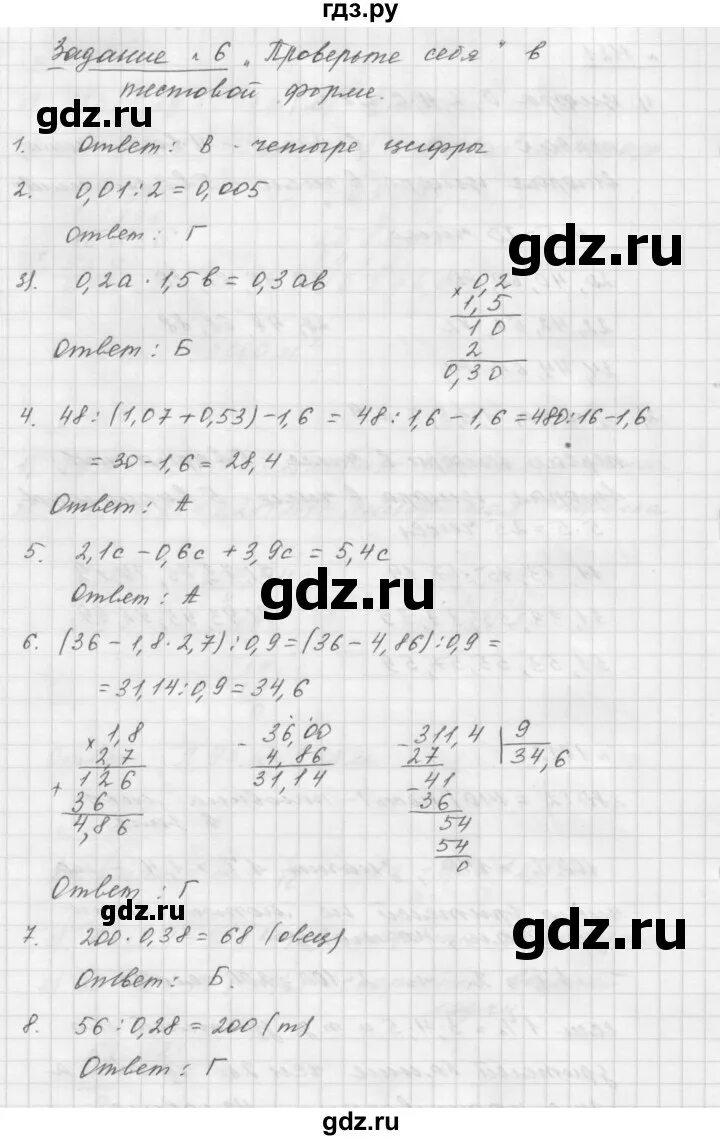 гдз.ру
Задание № 6 „Проверьте себя" в
тестовой форме.
gdz.ru
1. Ответ: В - четыре цифры
2. 0,01 : 2 = 0,005
Ответ: Г
gdz.ru
3). 0,2а · 1,5в = 0,3ав
× 0,2
1,5
1 0
2
0,30
Ответ: Б
4. 48 : (1,07 + 0,53) - 1,6 = 48 : 1,6 - 1,6 = 480 : 16 - 1,6
= 30 - 1,6 = 28,4
Ответ: А
5. 2,1с - 0,6с + 3,9с = 5,4с
gdz.ru
Ответ: А
6. (36 - 1,8 · 2,7) : 0,9 = (36 - 4,86) : 0,9 =
= 31,14 : 0,9 = 34,6
× 1,8
2,7
+ 126
36
4,86
- 36,00
4,86
31,14
- 311,4 | 9
27 34,6
- 41
36
54
54
0
gdz.ru
Ответ: Г
gdz.ru
7. 200 · 0,38 = 68 (овец)
Ответ: Б.
8. 56 : 0,28 = 200 (т)
Ответ: Г
gdz.ru